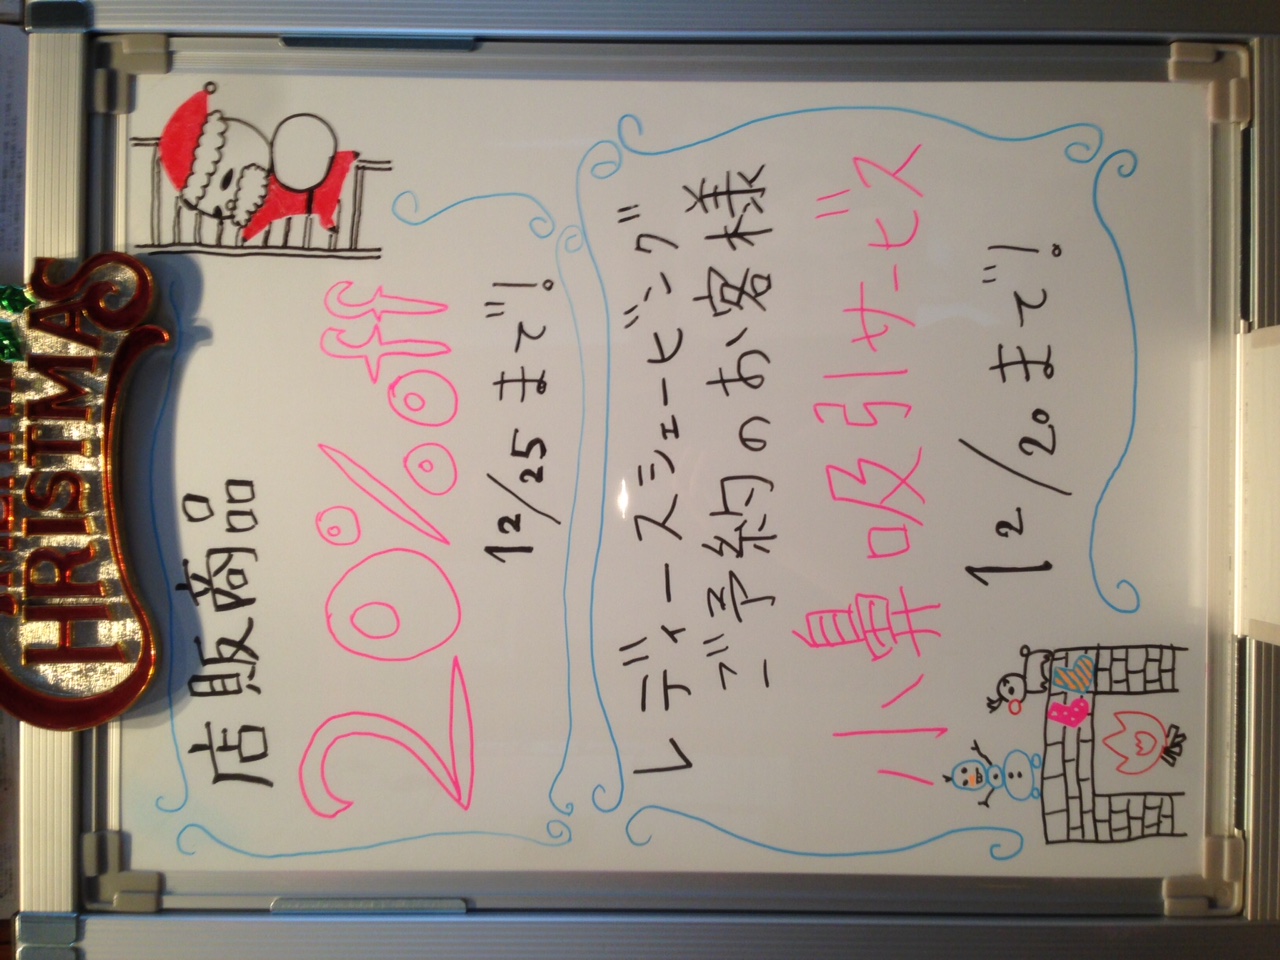 CHRISTMAS
店販商品
20%off
12/25 まで!
レディースシェービング
ご予約のお客様
小鼻吸引サービス
12/20 まで!